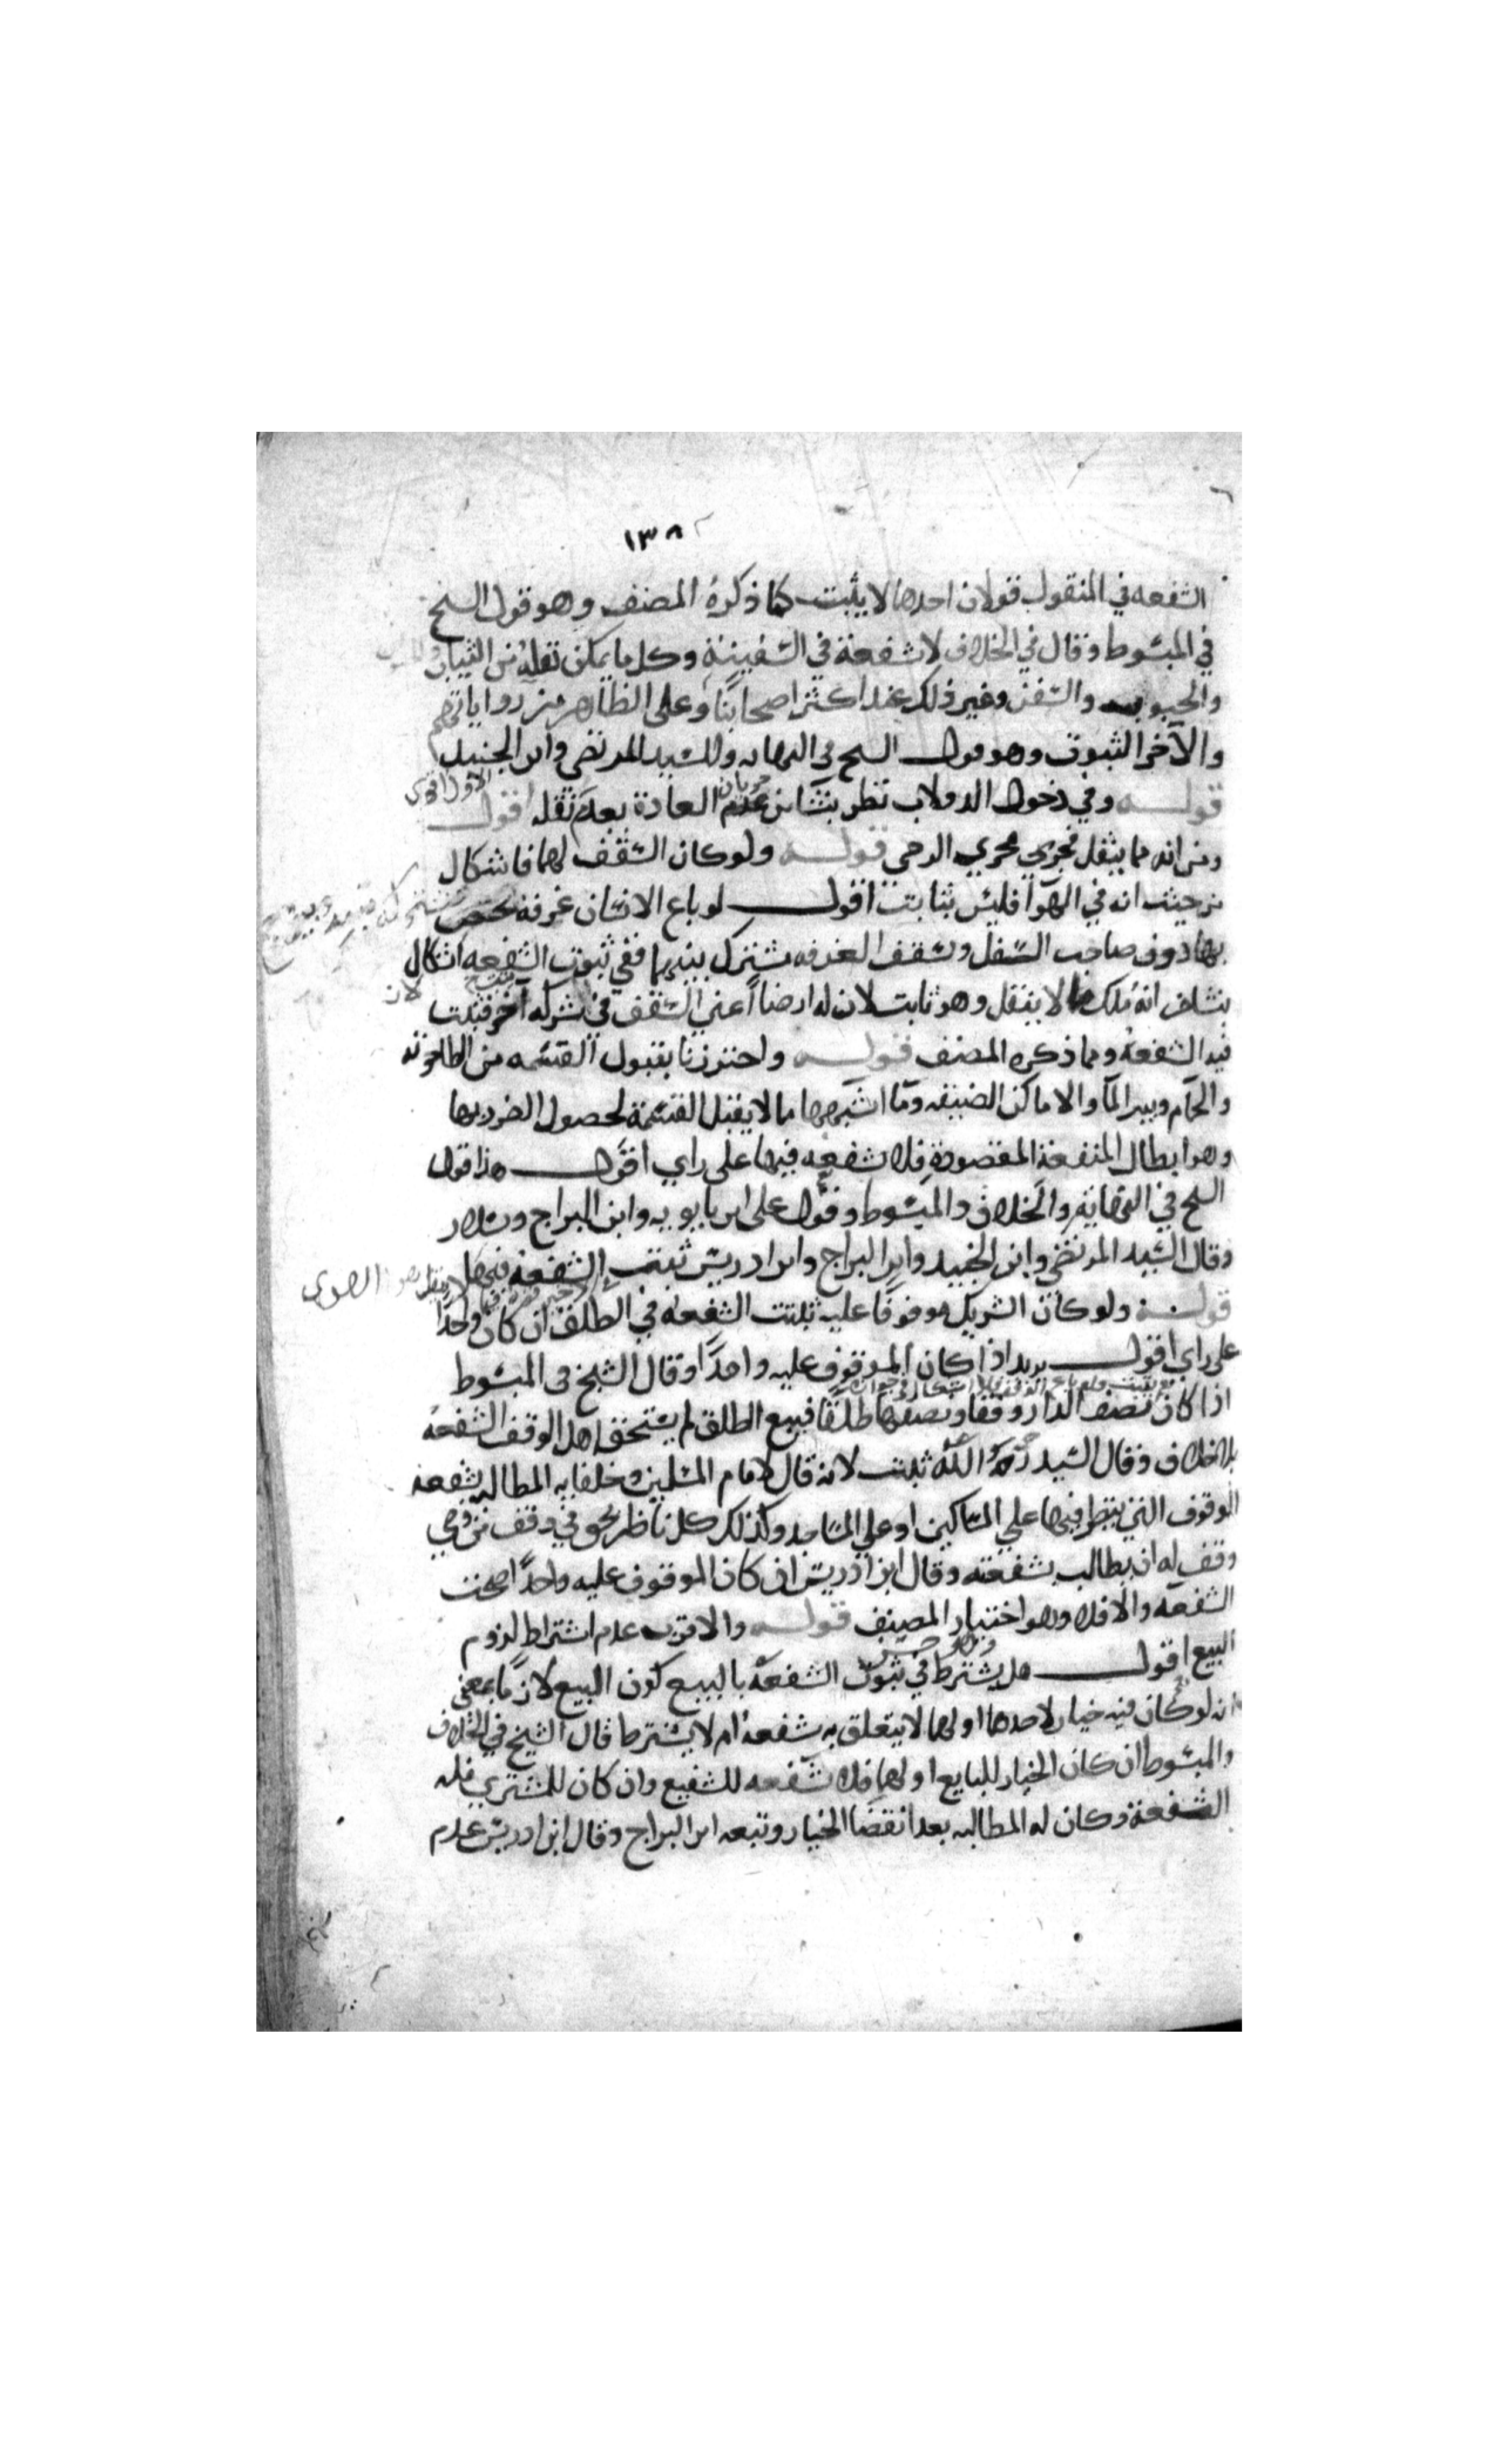 ١٣٨
الشفعه في المنقول قولان احدهما لا يثبت كما ذكره المصنف وهو قول الشيخ
في المبسوط وقال في الخلاف لا شفعة في السفينة وكل ما يمكن نقله من الثياب
والحبوب والسفن وغير ذلك عند اكثر اصحابنا وعلى الظاهر من رواياتهم
والآخر الثبوت وهو قول الشيخ في النهايه والسيد المرتضى وابن الجنيد
قوله وفي دخول الدولاب نظر ينشا من جريان العادة بعدم نقله اقول
الاول اقوى
ومن انه مما ينقل فجرى مجرى الرحى قوله ولو كان السقف لهما فاشكال
من حيث انه في الهوا فليس بثابت اقول لو باع الانسان غرفة يختص
بها دون صاحب السفل وسقف الغرفه مشترك بينهما ففي ثبوت الشفعه اشكال
ينشا من انه ملك لا ينقل وهو ثابت لان له ارضا اعني السقف في شركه آخر فثبت
لان
فيه الشفعه ومما ذكره المصنف قوله واحترزنا بقبول القسمه من الطاحونه
والحمام وبير الما والاماكن الضيقه وما اشبهها مما لا يقبل القسمة لحصول الضرر بها
وهو ابطال المنفعة المقصودة فلا شفعه فيها على راي اقول هذا قول
الشيخ في النهاية والخلاف والمبسوط وقول على ابن بابويه وابن البراج وسلار
وقال السيد المرتضى وابن الجنيد وابن البراج وابن ادريس تثبت الشفعه
قوله ولو كان الشريك موقوفا عليه ثبتت الشفعه في الطلق ان كان واحدا
على راي اقول يريد اذا كان الموقوف عليه واحدا وقال الشيخ في المبسوط
اذا كان نصف الدار وقفا ونصفها طلقا فبيع الطلق لم يستحق اهل الوقف الشفعه
بلا خلاف وقال السيد رحمه الله ثبتت لانه قال لامام المسلمين وخلفايه المطالبه بشفعة
الوقوف التي ينظر فيها على المساكين او على المساجد وكذلك كل ناظر بحق في وقف من وصي
وقف له ان يطالب بشفعته وقال ابن ادريس ان كان الموقوف عليه واحدا صحت
الشفعه والا فلا وهو اختيار المصنف قوله والاقرب عدم اشتراط لزوم
البيع اقول هل يشترط في ثبوت الشفعه بالبيع كون البيع لازما بمعنى
انه لو كان فيه خيار لاحدهما او لهما لا يتعلق به شفعه ام لا يشترط قال الشيخ في الخلاف
والمبسوط ان كان الخيار للبايع او لهما فلا شفعه للشفيع وان كان للمشتري فله
الشفعة وكان له المطالبه بعد انقضا الخيار وتبعه ابن البراج وقال ابن ادريس عدم